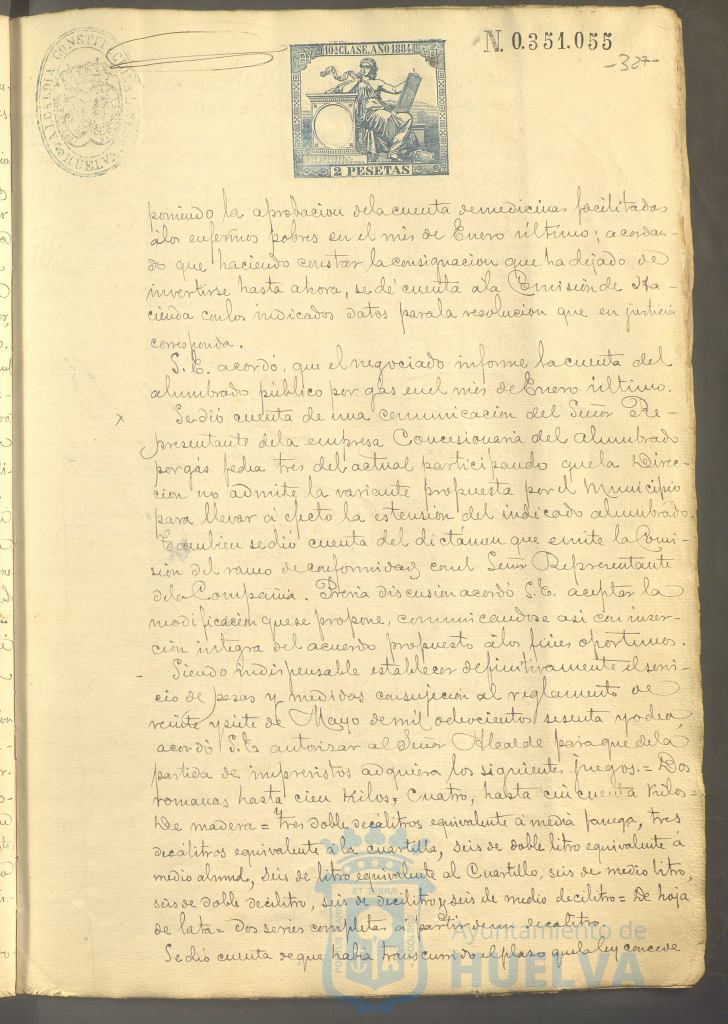 ALCALDIA CONSTITUCIONAL HUELVA
10ª CLASE. AÑO 1884
2 PESETAS
N. 0.351.055
-327-
poniendo la aprobacion dela cuenta demedicinas facilitadas
álos enfermos pobres en el mes de Enero último; acordan-
do que haciendo constar la consignacion que ha dejado de
invertirse hasta ahora, se dé cuenta ála Comisión de Ha-
cienda conlos indicados datos parala resolucion que en justicia
corresponda.
S. E. acordó, que el negociado informe la cuenta del
alumbrado público por gas en el mes de Enero último.
Se dió cuenta de una comunicacion del Señor Re-
presentante dela empresa Concesionaria del alumbrado
por gas fecha tres del actual participando que la Direc-
cion no admite la variante propuesta por el Municipio
para llevar á efecto la estension del indicado alumbrado.
Tambien se dió cuenta del dictámen que emite la Comi-
sion del ramo de conformidad con el Señor Representante
dela Compañia. Prévia discusion acordó S. E. aceptar la
modificacion que se propone, comunicandose asi con inser-
cion integra del acuerdo propuesto álos fines oportunos.
Siendo indispensable establecer definitivamente el servi-
cio de pesas y medidas consujecion al reglamento de
veinte y siete de Mayo de mil ochocientos sesenta y ocho,
acordó S. E. autorizar al Señor Alcalde para que dela
partida de imprevistos adquiera los siguientes juegos.= Dos
romanas hasta cien Kilos, Cuatro, hasta cincuenta Kilos=
De madera= tres doble decálitros equivalente á media fanega, tres
decálitros equivalente ála cuartilla, seis de doble litro equivalente á
medio almud, seis de litro equivalente al Cuartillo, seis de medio litro,
seis de doble decilitro, seis de decilitro y seis de medio decilitro= De hoja
de lata= dos series completas á partir de un decalitro.
Se dió cuenta de que habia transcurrido el plazo que la ley concede
Ayuntamiento de
HUELVA